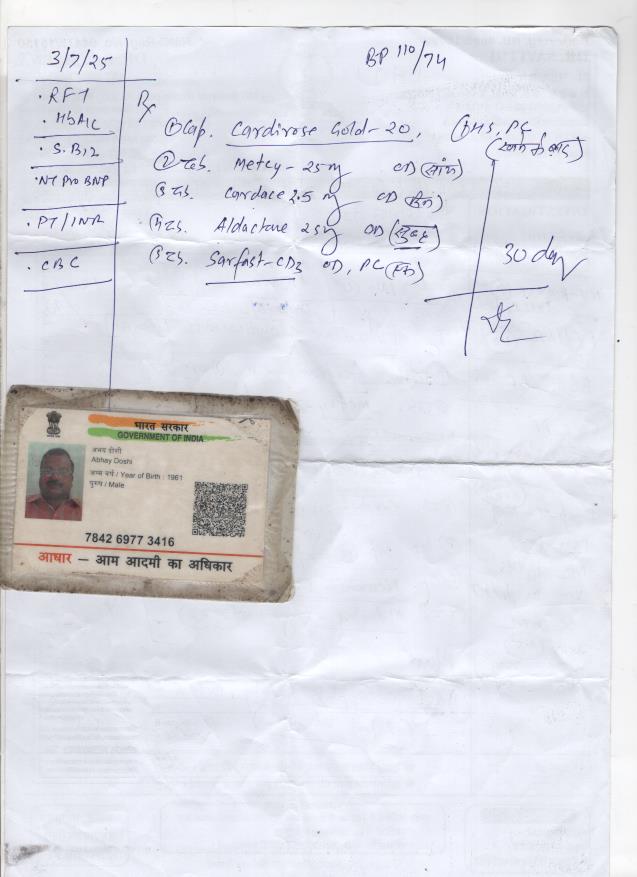 3/7/25
BP 110/74
· RFT
· HbA1C
· S.B12
· NT Pro BNP
· PT/INR
· CBC
Rx
① Cap. Cardirose Gold-20, HS, PC
(खाने के बाद)
② Tab. Metcy-25mg OD (सांय)
③ Tab. Cardace 2.5mg OD (दिन)
④ Tab. Aldactone 25mg OD (सुबह)
⑤ Tab. Sarfast-CD3 OD, PC
30 day
भारत सरकार
GOVERNMENT OF INDIA
अभय डोसी
Abhay Doshi
जन्म वर्ष / Year of Birth : 1961
पुरुष / Male
7842 6977 3416
आधार – आम आदमी का अधिकार